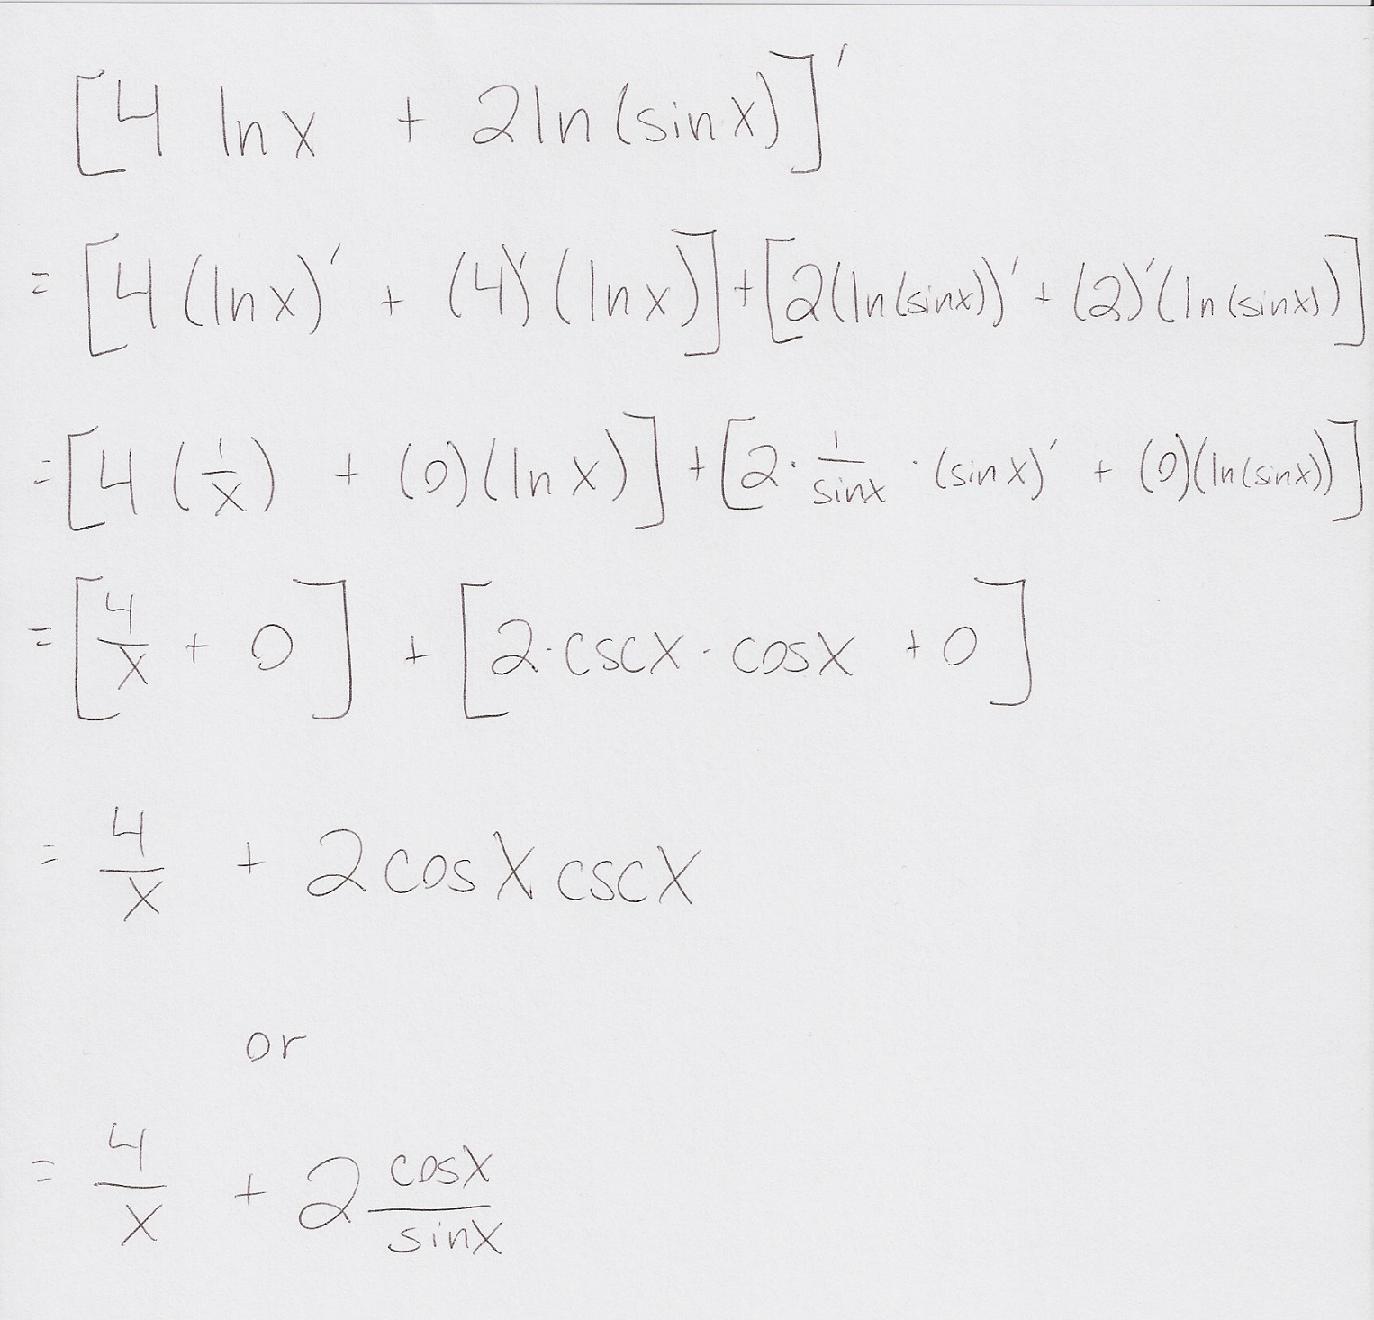 [4 ln x + 2 ln (sin x)]′
= [4 (ln x)′ + (4)′ (ln x)] + [2(ln(sinx))′ + (2)′(ln(sinx))]
= [4 (1/x) + (0)(ln x)] + [2 · 1/sinx · (sin x)′ + (0)(ln(sinx))]
= [4/x + 0] + [2 · cscx · cosx + 0]
= 4/x + 2 cosx cscx
or
= 4/x + 2 cosx/sinx